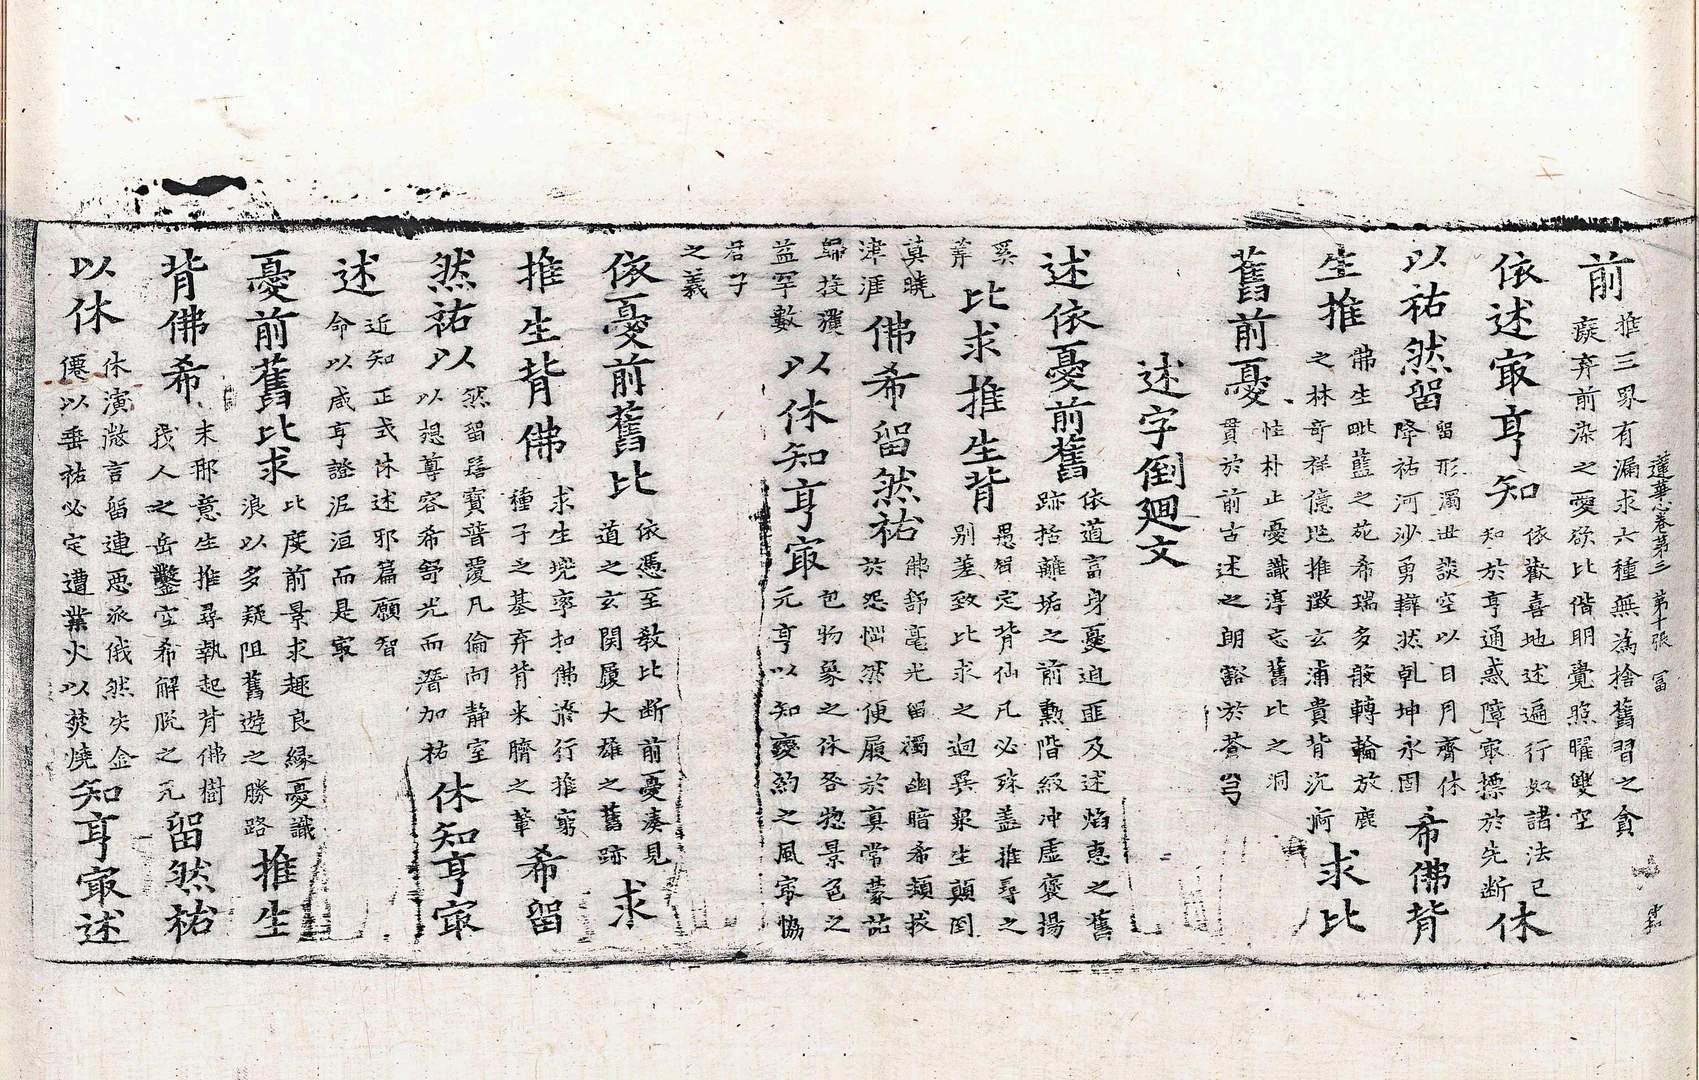 蓮華心卷第三　第十張　冨
前
推三界有漏求六種無為捨舊習之貪
癡弃前染之愛欲比偕明覺照曜雙空
依述㝡亨知
依歡喜地述遍行如諸法已
知於亨通惑障㝡摽於先断
休
以祐然留
留形濁世談空以日月齊休
降祐河沙勇辯然乾坤永固
希佛背
生推
佛生毗藍之苑希瑞多般轉輪放鹿
之林奇祥億兆推徴玄浦貴背沉痾
求比
舊前憂
性朴正憂識淳忘舊比之洞
貫於前古述之朗豁於蒼穹
述字倒廻文
述依憂前舊
依道言身憂迫匪及述焰恵之舊
跡捨離垢之前勲階級冲虛襃揚
奚
筭
比求推生背
愚智定背仙凡必殊盖推尋之
別差致比求之逈異衆生顛倒
莫曉
津涯
佛希留然祐
佛舒毫光留獨幽暗希須救
於怨惱然使履於真常蒙詁
歸投
益罕數
以休知亨㝡
包物象之休各惣景色之
元亨以知変約之風㝡恊
君子
之義
依憂前舊比
依憑至教比断前憂湊見
道之玄関履大雄之舊跡
求
推生背佛
求生兜率扣佛游行推窮
種子之基弃背米臍之葷
希留
然祐以
然留髻寳普覆凡倫向静室
以想尊容希舒光而潛加祐
休知亨㝡
述
近知正式休述邪篇願智
命以咸亨證泥洹而是㝡
憂前舊比求
比度前景求趣良縁憂識
浪以多疑阻舊遊之勝路
推生
背佛希
末那意生推尋執起背佛樹
我人之岳鑿空希解脫之元
留然祐
以休
休演微言留連惡派俄然失金
僊以垂祐必定遭業火以焚燒
知亨㝡述